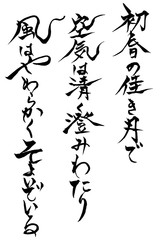 初春の佳き月で
空気は清く澄みわたり
風はやわらかくそよいでいる